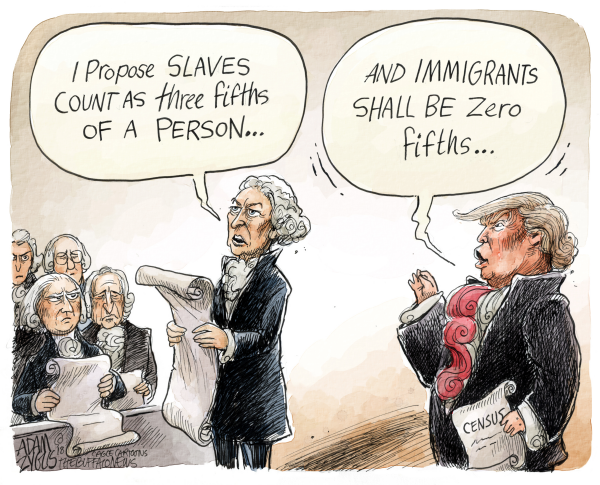 I Propose SLAVES
COUNT AS three fifths
OF A PERSON...
AND IMMIGRANTS
SHALL BE Zero
fifths...
CENSUS
ADAM
ZYGLIS
©
'18
CAGLE CARTOONS
THE BUFFALO NEWS